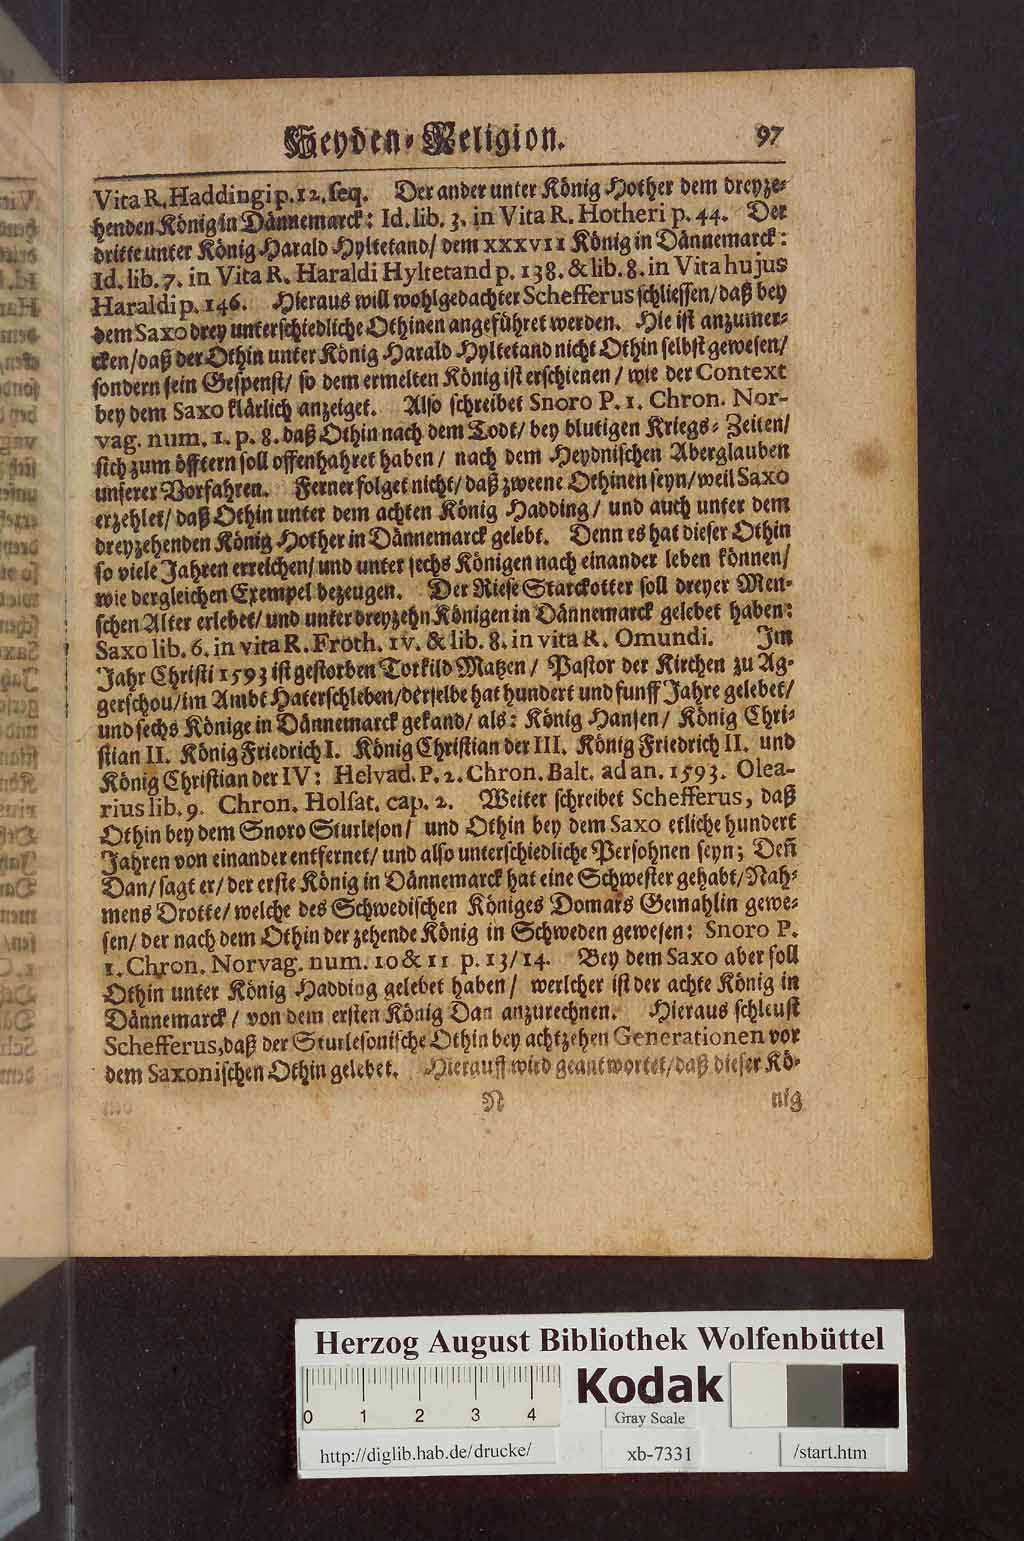 Heyden-Religion. 97
Vita R. Haddingi p. 12. seq. Der ander unter König Hother dem dreyze-
henden König in Dännemarck: Id. lib. 3. in Vita R. Hotheri p. 44. Der
dritte unter König Harald Hyltetand/ dem XXXVII König in Dännemarck:
Id. lib. 7. in Vita R. Haraldi Hyltetand p. 138. & lib. 8. in Vita hujus
Haraldi p. 146. Hieraus will wohlgedachter Schefferus schliessen/ daß bey
dem Saxo drey unterschiedliche Othinen angeführet werden. Hie ist anzumer-
cken/ daß der Othin unter König Harald Hyltetand nicht Othin selbst gewesen/
sondern sein Gespenst/ so dem ermelten König ist erschienen/ wie der Context
bey dem Saxo klärlich anzeiget. Also schreibet Snoro P. 1. Chron. Nor-
vag. num. 1. p. 8. daß Othin nach dem Todt/ bey blutigen Kriegs-Zeiten/
sich zum öfftern soll offenhahret haben/ nach dem Heydnischen Aberglauben
unserer Vorfahren. Ferner folget nicht/ daß zweene Othinen seyn/ weil Saxo
erzehlet/ daß Othin unter dem achten König Hadding/ und auch unter dem
dreyzehenden König Hother in Dännemarck gelebt. Denn es hat dieser Othin
so viele Jahren erreichen/ und unter sechs Königen nach einander leben können/
wie dergleichen Exempel bezeugen. Der Riese Starckotter soll dreyer Men-
schen Alter erlebet/ und unter dreyzehn Königen in Dännemarck gelebet haben:
Saxo lib. 6. in vita R. Froth. IV. & lib. 8. in vita R. Omundi. Im
Jahr Christi 1593 ist gestorben Torkild Matzen/ Pastor der Kirchen zu Ag-
gerschou/ im Ambt Haterschleben/ derselbe hat hundert und funff Jahre gelebet/
und sechs Könige in Dännemarck gekand/ als: König Hansen/ König Chri-
stian II. König Friedrich I. König Christian der III. König Friedrich II. und
König Christian der IV: Helvad. P. 2. Chron. Balt. ad an. 1593. Olea-
rius lib. 9. Chron. Holsat. cap. 2. Weiter schreibet Schefferus, daß
Othin bey dem Snoro Sturleson/ und Othin bey dem Saxo etliche hundert
Jahren von einander entfernet/ und also unterschiedliche Persohnen seyn; Deñ
Dan/ sagt er/ der erste König in Dännemarck hat eine Schwester gehabt/ Nah-
mens Drotte/ welche des Schwedischen Königes Domars Gemahlin gewe-
sen/ der nach dem Othin der zehende König in Schweden gewesen: Snoro P.
1. Chron. Norvag. num. 10 & 11 p. 13/14. Bey dem Saxo aber soll
Othin unter König Hadding gelebet haben/ werlcher ist der achte König in
Dännemarck/ von dem ersten König Dan anzurechnen. Hieraus schleust
Schefferus, daß der Sturlesonische Othin bey achtzehen Generationen vor
dem Saxonischen Othin gelebet. Hierauff wird geantwortet/ daß dieser Kö-
N nig
Herzog August Bibliothek Wolfenbüttel
0 1 2 3 4 Kodak
Gray Scale
http://diglib.hab.de/drucke/ xb-7331 /start.htm